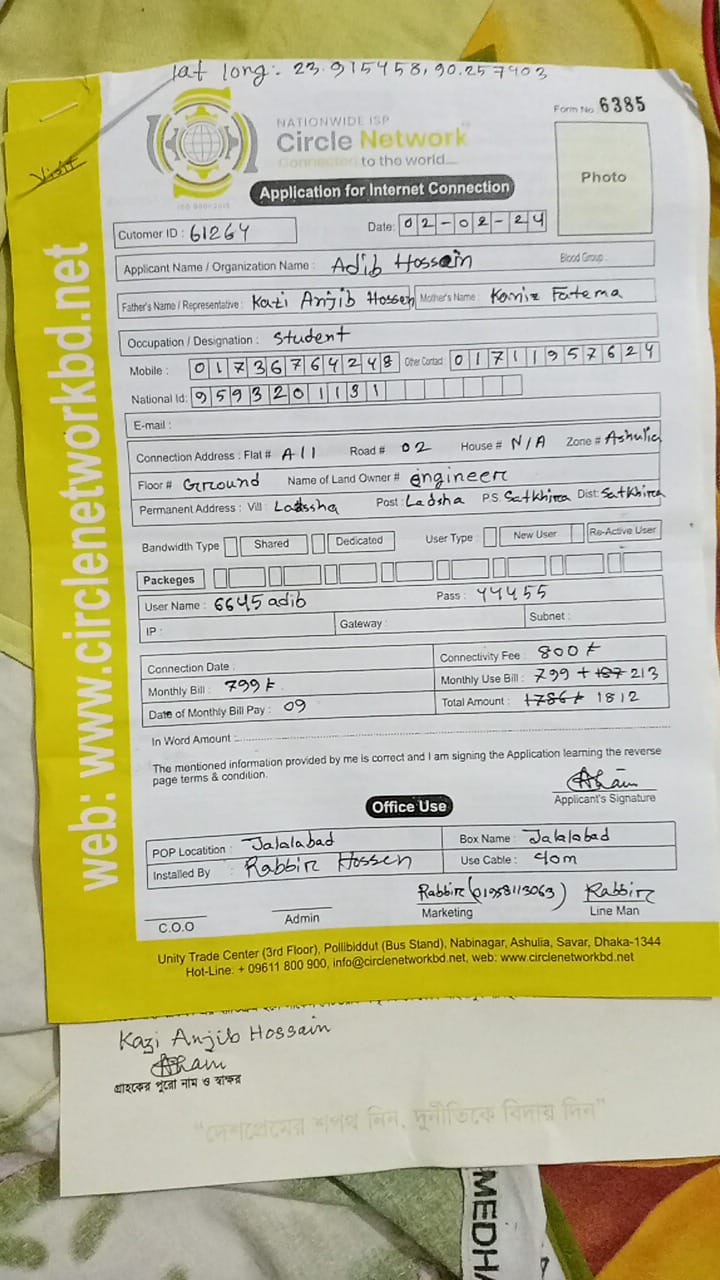 lat long: 23.915458, 90.257403
Form No. 6385
NATIONWIDE ISP
Circle Network
Connected to the world....
ISO 9001:2015
Visit
Photo
Application for Internet Connection
Cutomer ID : 61264
Date: 02-02-24
Applicant Name / Organization Name : Adib Hossain
Blood Group :
Father's Name / Representative : Kazi Anjib Hossen Mother's Name : Kaniz Fatema
Occupation / Designation : Student
Mobile : 01736764248 Other Contact : 01711957624
National Id: 9593201131
E-mail :
Connection Address : Flat # A11 Road # 02 House # N/A Zone # Ashulia
Floor # Ground Name of Land Owner # engineer
Permanent Address : Vill: Post : Ladsha P.S. Satkhira Dist: Satkhira
Bandwidth Type Shared Dedicated User Type : New User Re-Active User
Packeges
User Name : 6645adib Pass : 44455
IP : Gateway : Subnet :
Connection Date : Connectivity Fee : 800 ৳
Monthly Bill : 799 ৳ Monthly Use Bill : 799 + 187 213
Date of Monthly Bill Pay : 09 Total Amount : 1786 ৳ 1812
In Word Amount :
The mentioned information provided by me is correct and I am signing the Application learning the reverse
page terms & condition.
Applicant's Signature
Office Use
POP Locatition : Jalalabad Box Name : Jalalabad
Installed By : Rabbir Hossen Use Cable : 40m
Rabbir (01958113063) Rabbir
C.O.O Admin Marketing Line Man
Unity Trade Center (3rd Floor), Pollibiddut (Bus Stand), Nabinagar, Ashulia, Savar, Dhaka-1344
Hot-Line: + 09611 800 900, info@circlenetworkbd.net, web: www.circlenetworkbd.net
web: www.circlenetworkbd.net
Kazi Anjib Hossain
গ্রাহকের পুরো নাম ও স্বাক্ষর
"দেশপ্রেমের শপথ নিন, দুর্নীতিকে বিদায় দিন"
MEDH